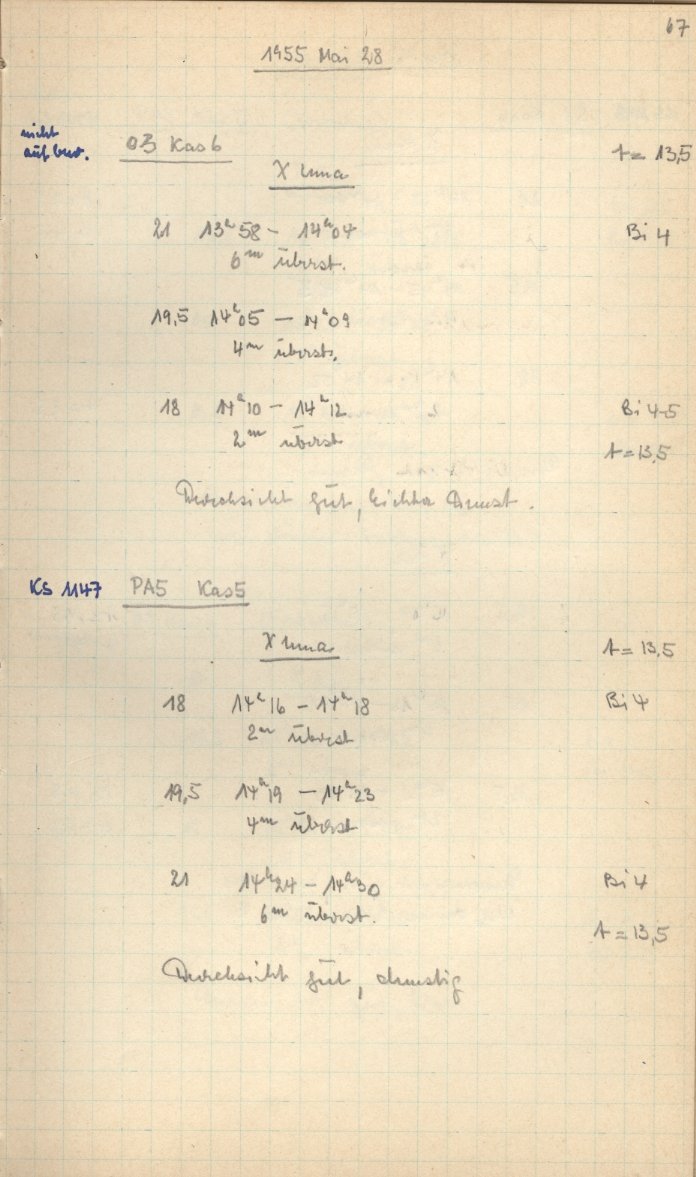 67
1955 Mai 28
nicht
aufbew.
03 Kas 6
t = 13,5
X Luna
21 13h58 – 14h04
Bi 4
6m überst.
19,5 14h05 – 14h09
4m überst.
18 14h10 – 14h12
Bi 4-5
2m überst
t = 13,5
Durchsicht gut, leichter Dunst.
KS 1147 PA5 Kas5
X Luna
t = 13,5
18 14h16 – 14h18
Bi 4
2m überst
19,5 14h19 – 14h23
4m überst
21 14h24 – 14h30
Bi 4
6m überst.
t = 13,5
Durchsicht gut, dunstig